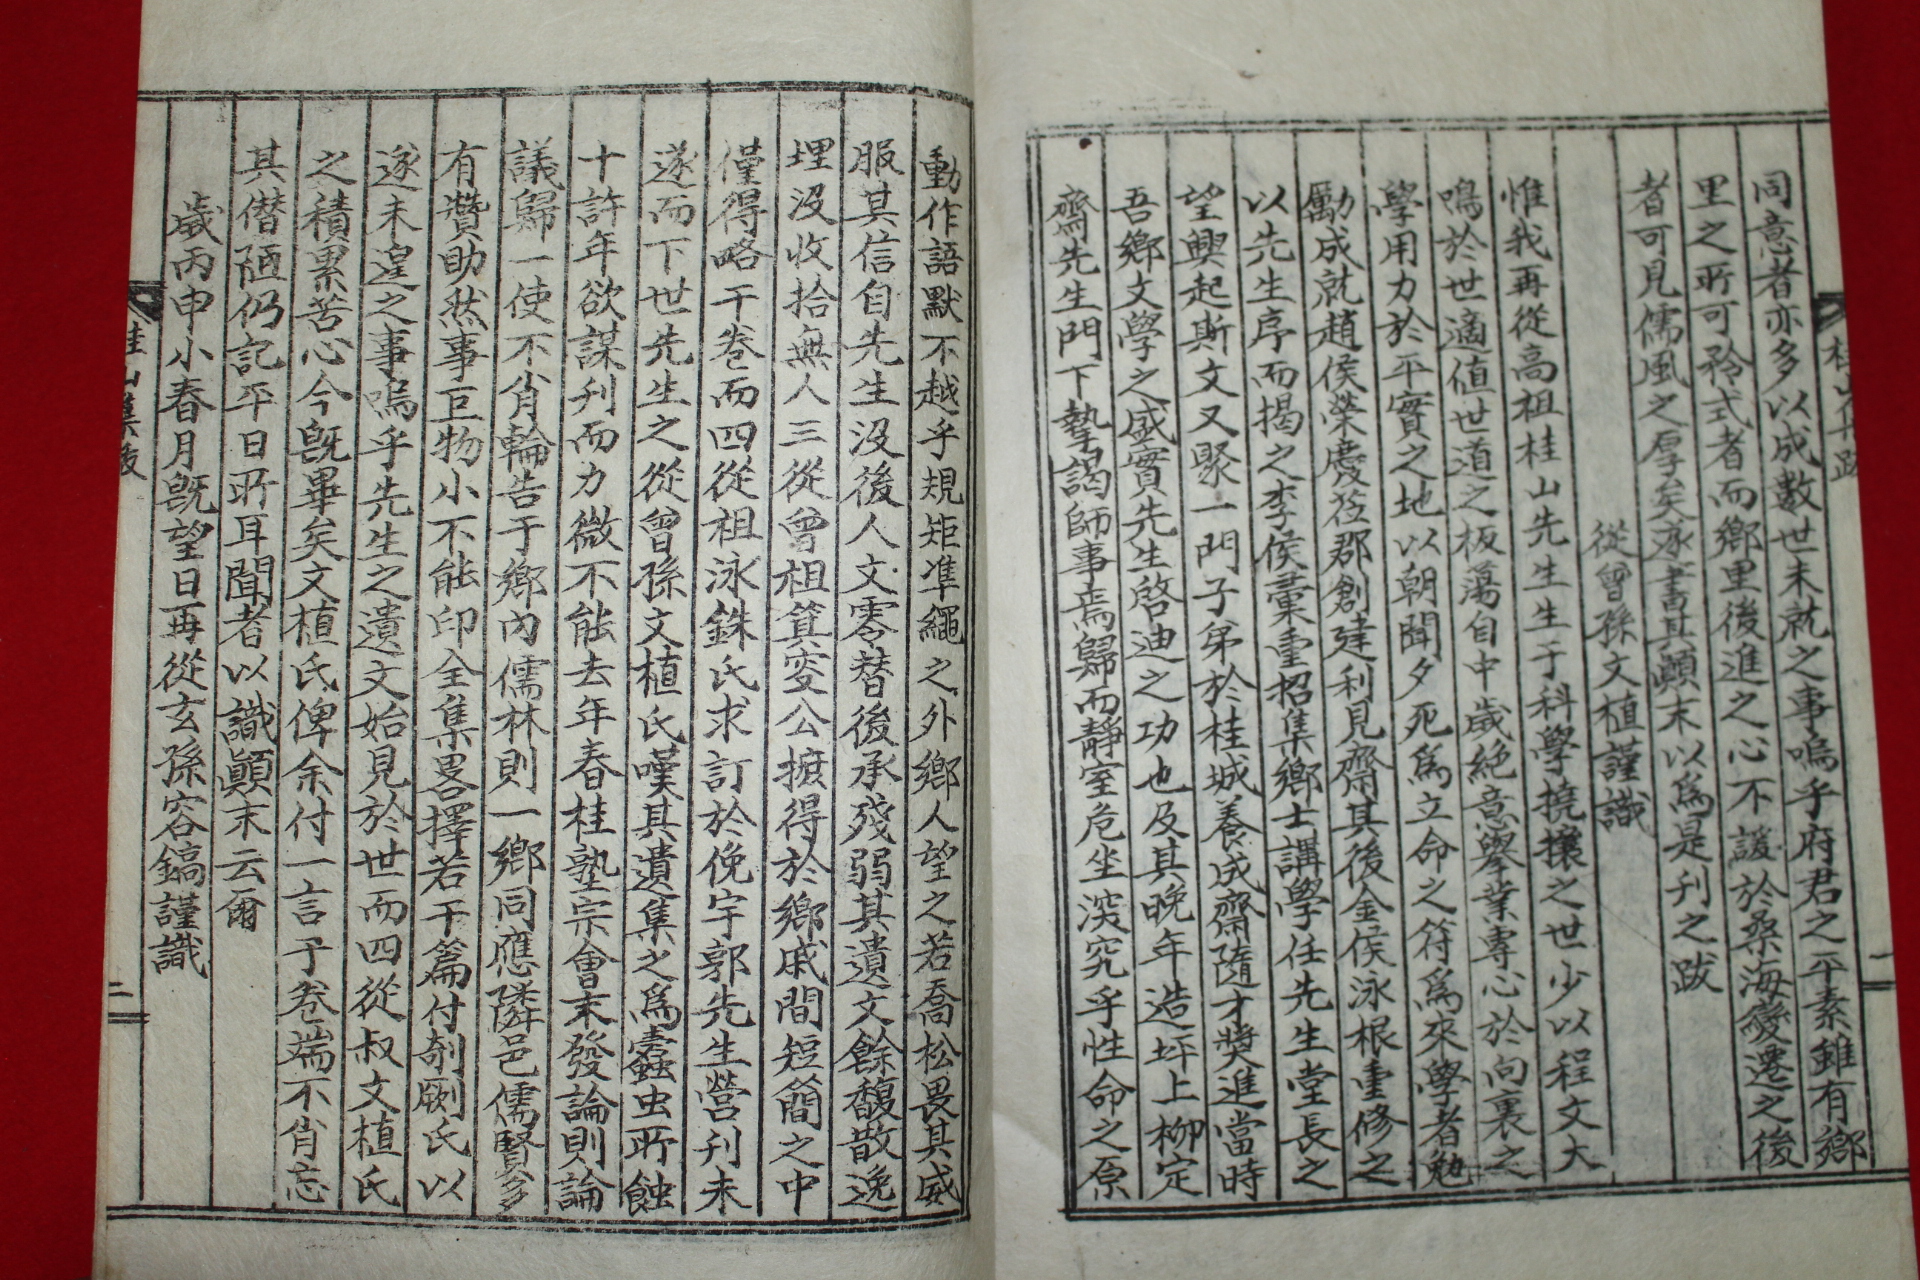 同意者亦多以成數世未就之事嗚乎府君之平素雖有鄕
里之所可矜式者而鄕里後進之心不諼於桑海變遷之後
者可見儒風之厚矣遂書其顚末以爲是刊之跋
從曾孫文植謹識
惟我再從高祖桂山先生生于科學撓攘之世少以程文大
鳴於世適値世道之板蕩自中歲絶意擧業專心於向裏之
學用力於平實之地以朝聞夕死爲立命之符爲來學者勉
勵成就趙侯榮慶莅郡創建利見齋其後金侯泳根重修之
以先生序而揭之李侯彙重招集鄕士講學任先生堂長之
望興起斯文又聚一門子弟於桂城養成齋隨才奬進當時
吾鄕文學之盛實先生啓迪之功也及其晩年造坪上柳定
齋先生門下摯謁師事焉歸而靜室危坐深究乎性命之原
動作語默不越乎規矩準繩之外鄕人望之若喬松畏其威
服其信自先生沒後人文零替後承殘弱其遺文餘馥散逸
埋沒收拾無人三從曾祖箕奕公摭得於鄕戚間短簡之中
僅得略干卷而四從祖泳銖氏求訂於俛宇郭先生營刊未
遂而下世先生之從曾孫文植氏嘆其遺集之爲蠹虫所蝕
十許年欲謀刊而力微不能去年春桂塾宗會末發論則論
議歸一使不肖輪告于鄕內儒林則一鄕同應隣邑儒賢多
有贊助然事巨物小不能印全集畧擇若干篇付剞劂氏以
遂未遑之事嗚乎先生之遺文始見於世而四從叔文植氏
之積累苦心今旣畢矣文植氏俾余付一言于卷端不肖忘
其僭陋仍記平日所耳聞者以識顚末云爾
歲丙申小春月旣望日再從玄孫容鎬謹識
桂山集跋
二